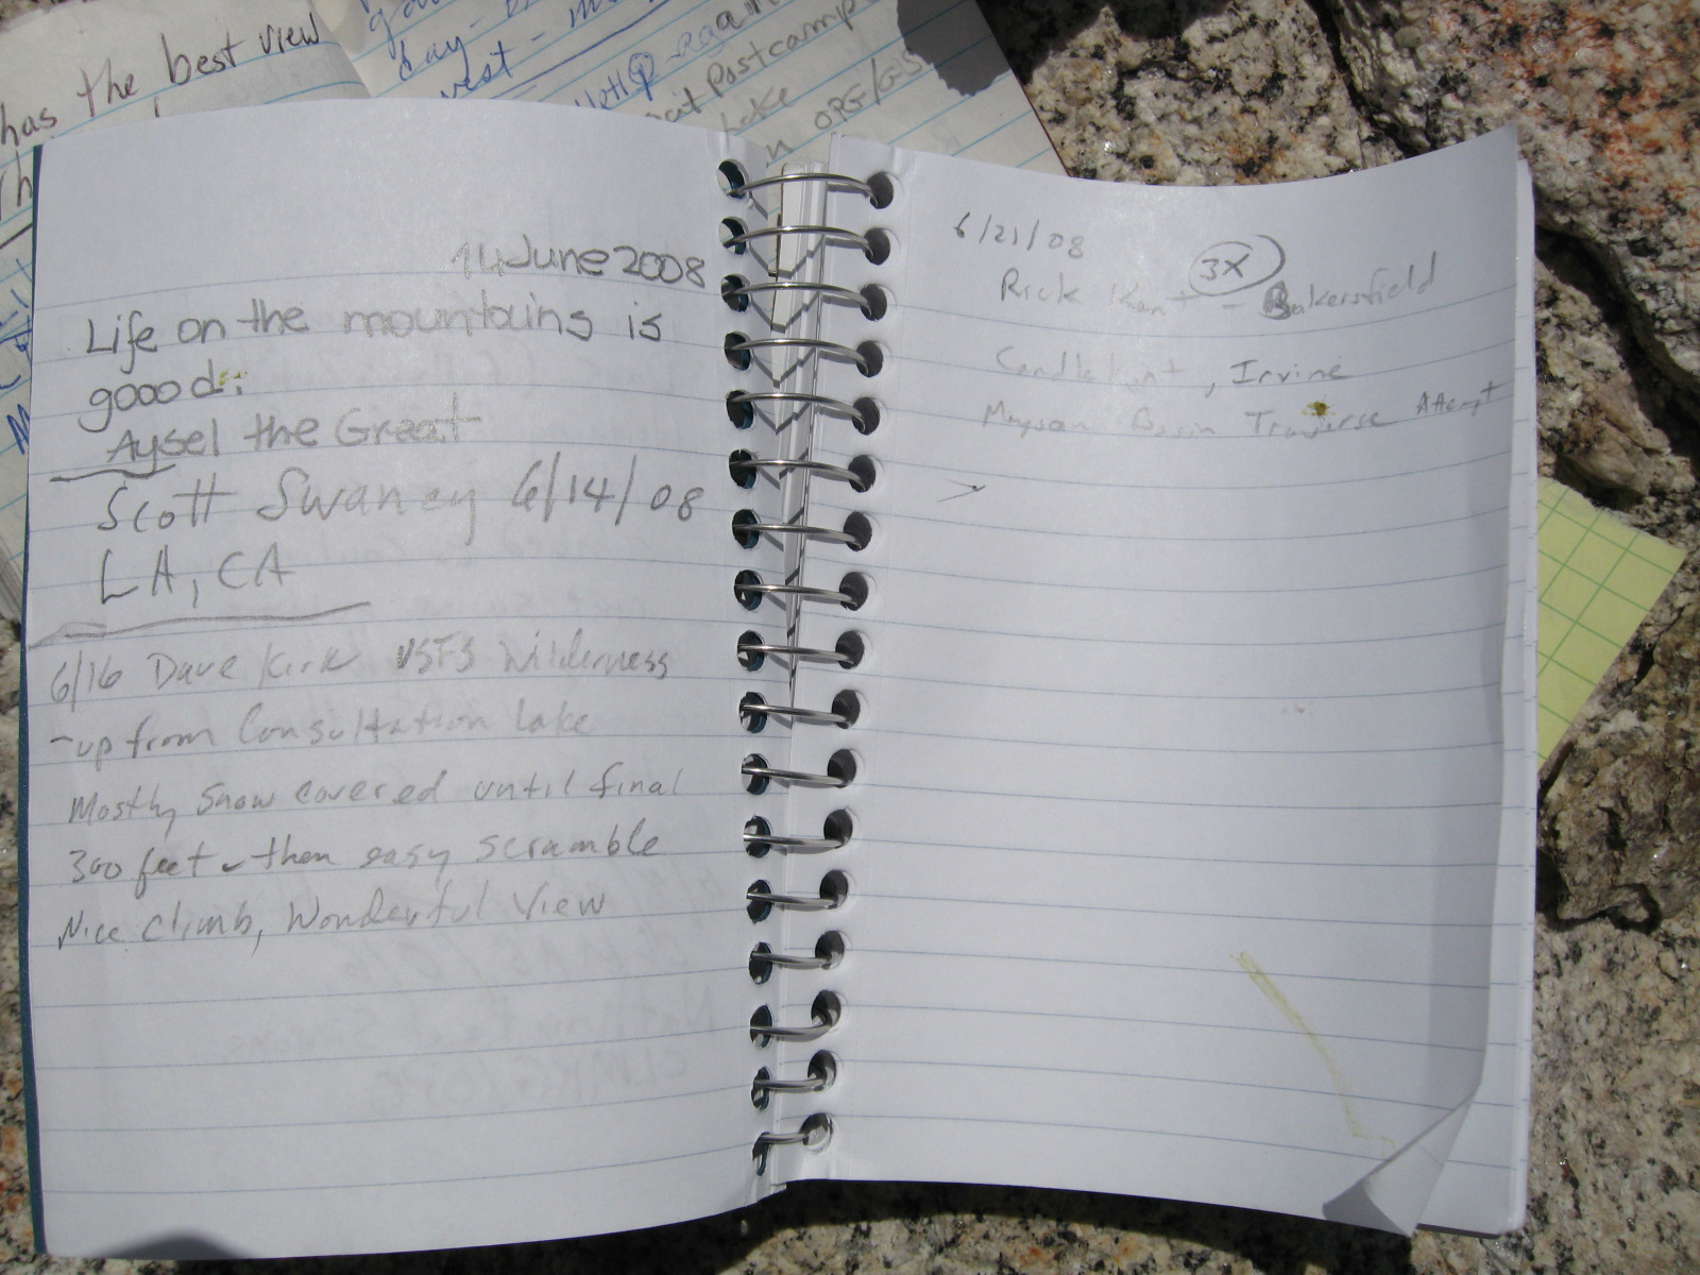 has the best view
day
vest
Postcamp
Lake
ORG/GS
14 June 2008
Life on the mountains is
goood.
Aysel the Great
Scott Swaney 6/14/08
LA, CA
6/16 Dave Kirk USFS Wilderness
-up from Consultation Lake
Mostly Snow covered until final
300 feet - then easy scramble
Nice Climb, Wonderful View
6/21/08
3X
Rick Kent - Bakersfield
Kent, Irvine
Basin Traverse Attempt